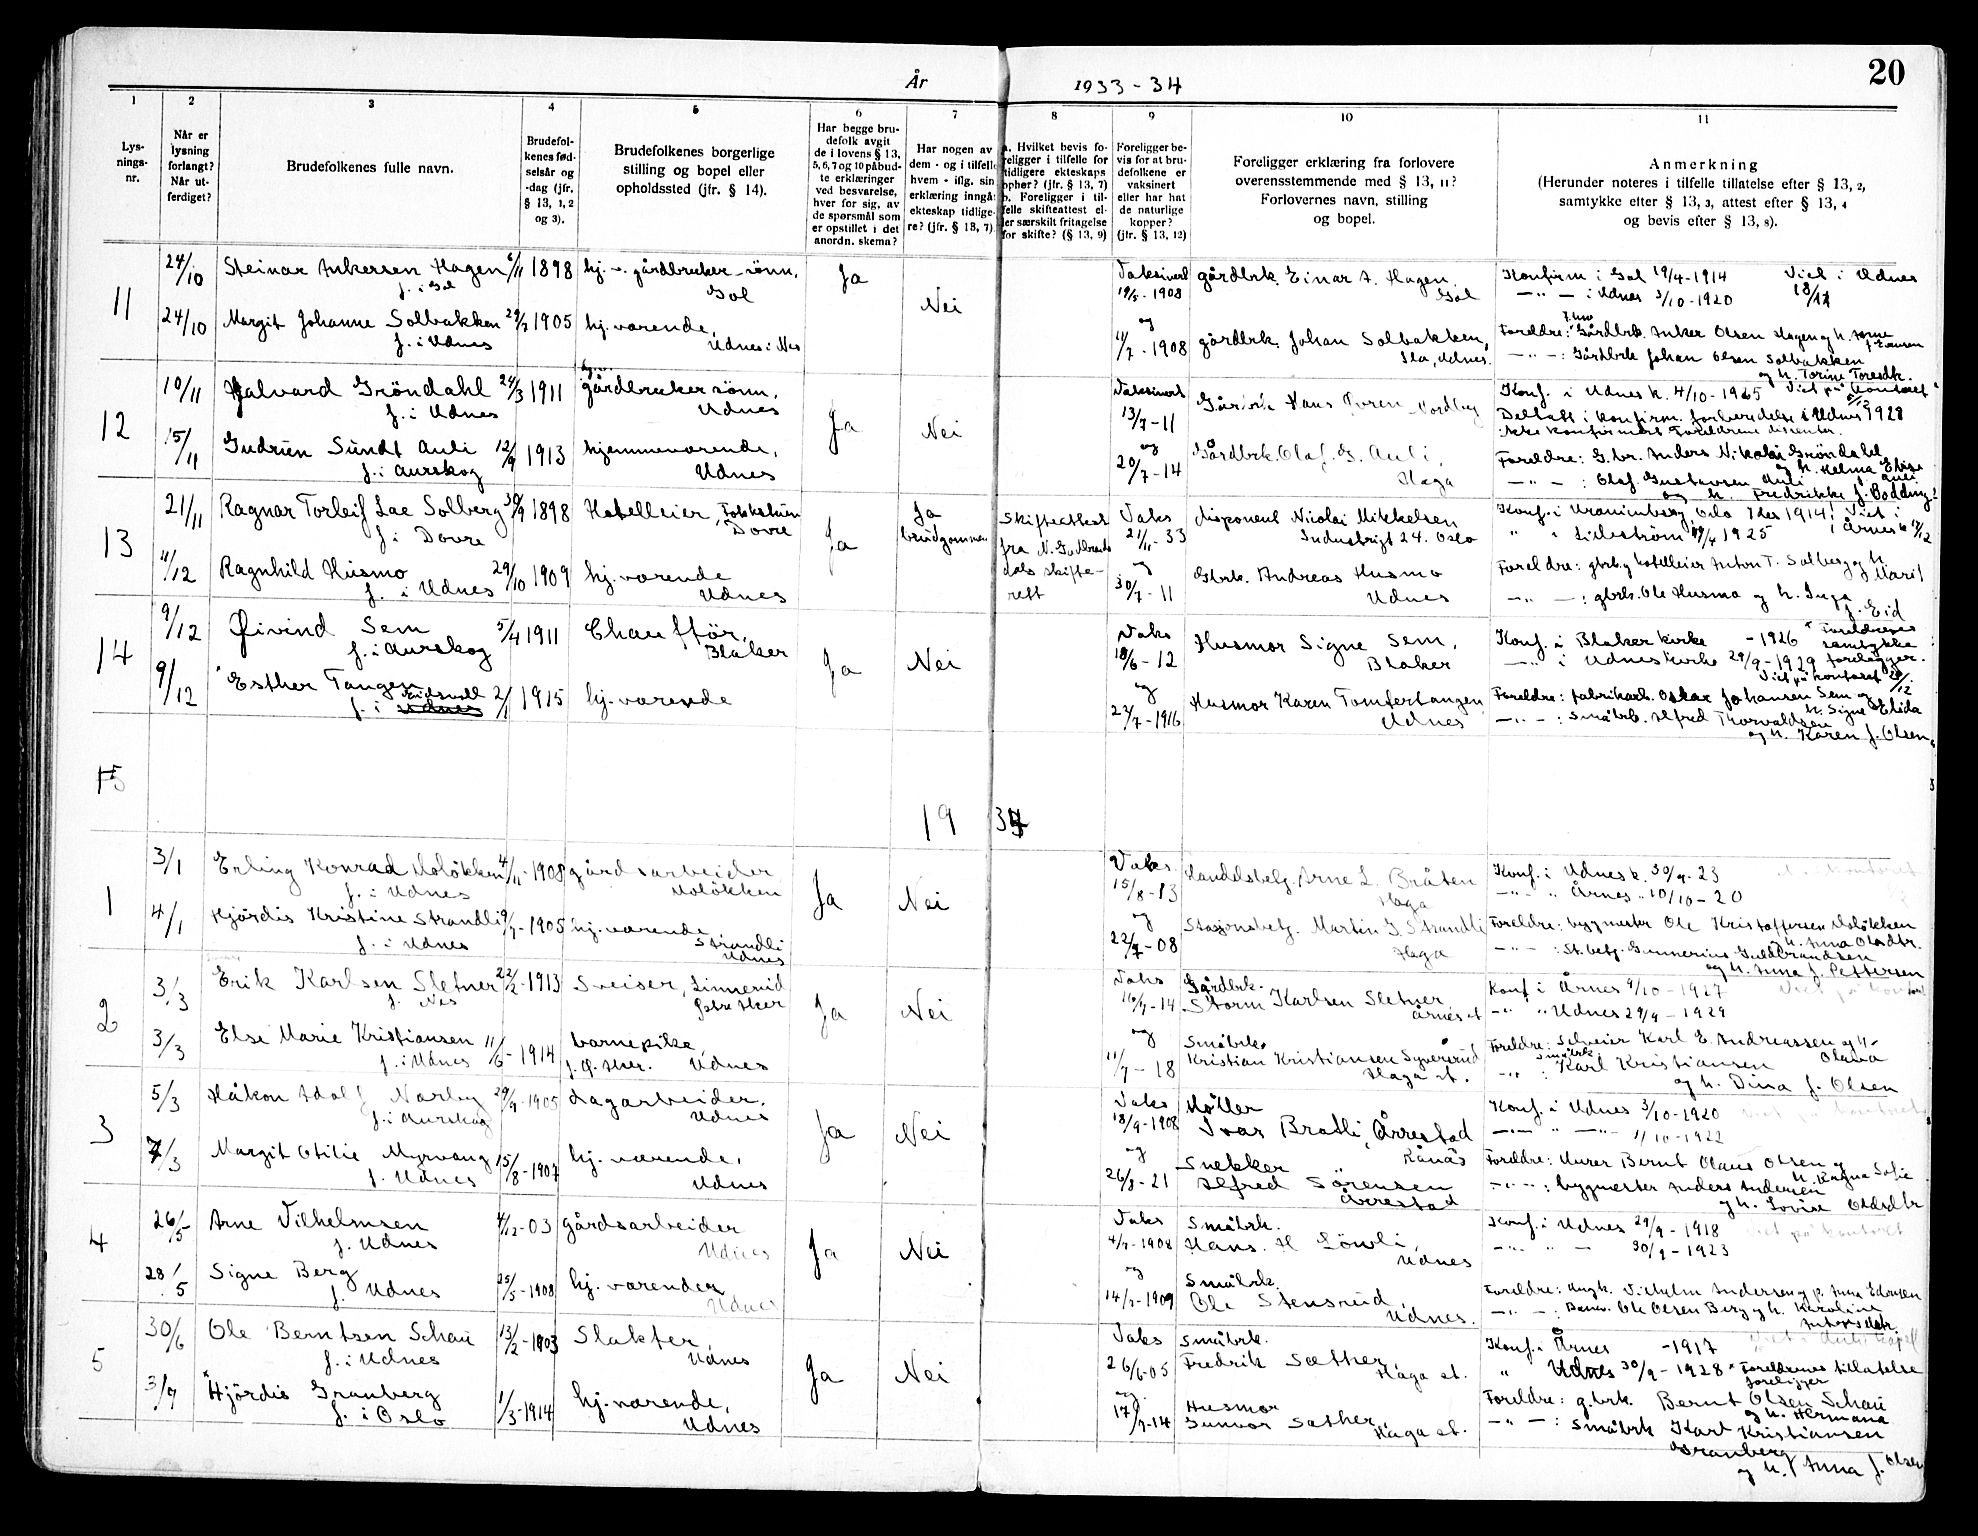 20
År 1933-34
1 2 3 4 5 6 7 8 9 10 11
Lys-
nings-
nr.
Når er
lysning
forlangt?
Når ut-
ferdiget?
Brudefolkenes fulle navn.
Brudefol-
kenes fød-
selsår og
-dag (jfr.
§ 13, 1, 2
og 3).
Brudefolkenes borgerlige
stilling og bopel eller
opholdssted (jfr. § 14).
Har begge bru-
defolk avgit
de i lovens § 13,
5, 6, 7 og 10 påbud-
te erklæringer
ved besvarelse,
hver for sig, av
de spørsmål som
er opstillet i det
anordn. skema?
Har nogen av
dem - og i tilfelle
hvem - iflg. sin
erklæring inngå
ekteskap tidlige-
re? (jfr. § 13, 7).
a. Hvilket bevis fo-
religger i tilfelle for
tidligere ekteskaps
ophør? (jfr. § 13, 7)
b. Foreligger i til-
felle skifteattest el-
ler særskilt fritagelse
for skifte? (§ 13, 9)
Foreligger be-
vis for at bru-
defolkene er
vaksinert
eller har hat
de naturlige
kopper?
(jfr. § 13, 12)
Foreligger erklæring fra forlovere
overensstemmende med § 13, 11?
Forlovernes navn, stilling
og bopel.
Anmerkning
(Herunder noteres i tilfelle tillatelse efter § 13, 2,
samtykke efter § 13, 3, attest efter § 13, 4
og bevis efter § 13, 8).
11
24/10 Steinar Ankersen Hagen 6/11 1898 hj.v. gårdbruker-sønn,
f. i Gol Gol
Ja Nei
Vaksinert
19/5-1908 gårdbrk. Einar A. Hagen
Gol
Konfirm i Gol 19/4-1914 Viet i Udnes
—"— i Udnes 3/10-1920 18/11
24/10 Margit Johanne Solbakken 1905 hj.værende,
f. i Udnes Udnes i Nes
og
11/7-1908 gårdbrk. Johan Solbakken,
Ila, Udnes.
Foreldre: Gårdbrk. Anker Olsen Hagen og h.
—"—: Gårdbrk Johan Olsen Solbakken
og h. Torine Toresdtr.
12
10/11 Halvard Gröndahl 24/3 1911 gårdbruker sönn,
f. i Udnes Udnes
Ja Nei
Vaksinert
13/7-11 Gårdbrk Hans Nordby
Konf. i Udnes k. 4/10-1925 Viet på kontoret
Deltatt i konfirm. forberedelse i Udnes 1928
ikke konfirmert Foreldrene dissenter.
15/11 Gudrun Sundt Auli 12/9 1913 hjemmeværende,
f. i Aurskog Udnes
og
20/7-14 Gårdbrk. Olaf G. Auli,
Haga
Foreldre: G.br. Anders Nikolai Gröndahl
og h. Helma Elise
—"—: Olaf Gustavsen Auli
og h. Fredrikke f. Bodding
13
21/11 Ragnar Torleif Lae Solberg 30/9 1898 Hotelleier, Fokkstun
f. i Dovre Dovre
Ja
Ja
brudgommen
Skifteattest
fra N. Gudbrands
dals skifte-
rett
Vaks
21/11-33 disponent Nicolai Mikkelsen
Industrigt 24. Oslo
Konf. i Uranienborg, Oslo 1914! Viet i
" i Lilleström 1925 i Årnes k 17/12
11/12 Ragnhild Husmo 29/10 1909 hj.værende
f. i Udnes Udnes
og
30/7-11 Gbrk. Andreas Husmo
Udnes
Foreldre: gbr. og hotelleier Anton T. Solberg og h.
Marit
—"—: gbrk. Ole Husmo og h. Inga
f. Eid
14
9/12 Øivind Sem 5/4 1911 Chauffør,
f. i Aurskog Blaker
Ja Nei
Vaks
18/6-12 Husmor Signe Sem,
Blaker
Konf. i Blaker kirke - 1926 * Foreldrenes
samtykke
—"— i Udnes kirke 29/9-1929 foreligger.
Viet på kontoret
9/12 * Esther Tangen 2/1 1915 hj.værende
f. i Eidsvoll Udnes
og
27/7-1916 Husmor Karen Tomtertangen
Udnes
Foreldre: fabrikarb. Oskar Johansen Sem og
h. Signe Elida
—"—: Småbrk. Alfred Thorvaldsen
og h. Karen f. Olsen
15
1934
1
3/1 Erling Konrad Molökken 4/11-1908 gårdsarbeider
f. i Udnes Molökken
Ja Nei
Vaks
15/8-13 Handelsbetj. Arne L. Bråten
Haga
Konf. i Udnes k. 30/9-23
—"— " Årnes " 10/10-20
4/1 Hjördis Kristine Strandli 1905 hj.værende
f. i Udnes Strandli
Udnes
og
22/7-08 Stasjonsbetj. Martin G. Strandli
Haga
Foreldre: bygmester Ole Kristoffersen Molökken
og h. Anna Olasdtr.
—"—: St.betj. Gunnerius Guldbrandsen
og h. Anna f. Pettersen
2
3/3 Erik Karlsen Sletner 22/2-1913 Sveiser, Linnerud
f. Nes
Ja Nei
Vaks
16/9-14 Gårdbrk.
Storm Karlsen Sletner,
Årnes st
Konf i Årnes 9/10-1927 Viet på kontoret
—"— " Udnes 29/9-1929
3/3 Else Marie Kristiansen 11/6-1914 barnepike,
f. i Udnes Udnes
og
11/7-18 Småbrk.
Kristian Kristiansen Syversrud
Haga st.
Foreldre: Sveiser Karl E. Andreassen og h.
Olava
—"—: Småbrk Karl Kristiansen
og h. Dina f. Olsen
3
5/3 Håkon Adolf Narby 29/9-1905 Lagarbeider.
f. i Aurskog Udnes
Ja Nei
Vaks
18/9-1908 Möller
Ivar Bratli, Årrestad
Rånås
Konf. i Udnes 3/10-1920 Viet på kontoret
—"— " —"— 1/10-1922
7/3 Margit Otilie Myrvang 15/8-1907 hj. værende,
f. Udnes Udnes
og
26/8-21 Snekker
Alfred Sörensen
Årrestad
Foreldre: Murer Bernt Olaus Olsen og
h. Ragna Sofie
—"—: bygmester Anders Andersen
og h. Lovise Olasdtr
4
26/5 Arne Vilhelmsen 4/12-03 gårdsarbeider
f. Udnes Udnes
Ja Nei
Vaks
4/9-1908 Småbrk.
Hans. H Lövli,
Udnes
Konf. i Udnes 29/9-1918 Viet på kontoret
—"— " — 30/9-1923
28/5 Signe Berg 25/5-1908 hj. værender
f. Udnes Udnes
og
14/7-1909 Småbrk.
Ole Stensrud,
Udnes.
Foreldre: Ungk. Vilhelm Andersen og p. Anna Edvardsen
—"—: Banev. Ole Olsen Berg og h. Karoline
Antonsdtr
5
30/6 Ole Berntsen Schau 13/2-1903 Slakter,
f. i Udnes Udnes
Ja Nei
Vaks
26/6-05 Småbrk.
Fredrik Sæther,
Haga st.
Konf. i Årnes -1917
" Udnes 30/9-1928 * Foreldrenes tillatelse
foreligger
3/7 * Hjördis Granberg 1/3-1914 hj.værende,
f. i Oslo Udnes
og
17/9-14 Husmor
Gunvor Sæther,
Haga st.
Foreldre: g.brk. Bernt Olsen Schau
og h. Hermana
—"—: Småbrk Karl Kristiansen
Granberg
og h. Anna f. Olsen